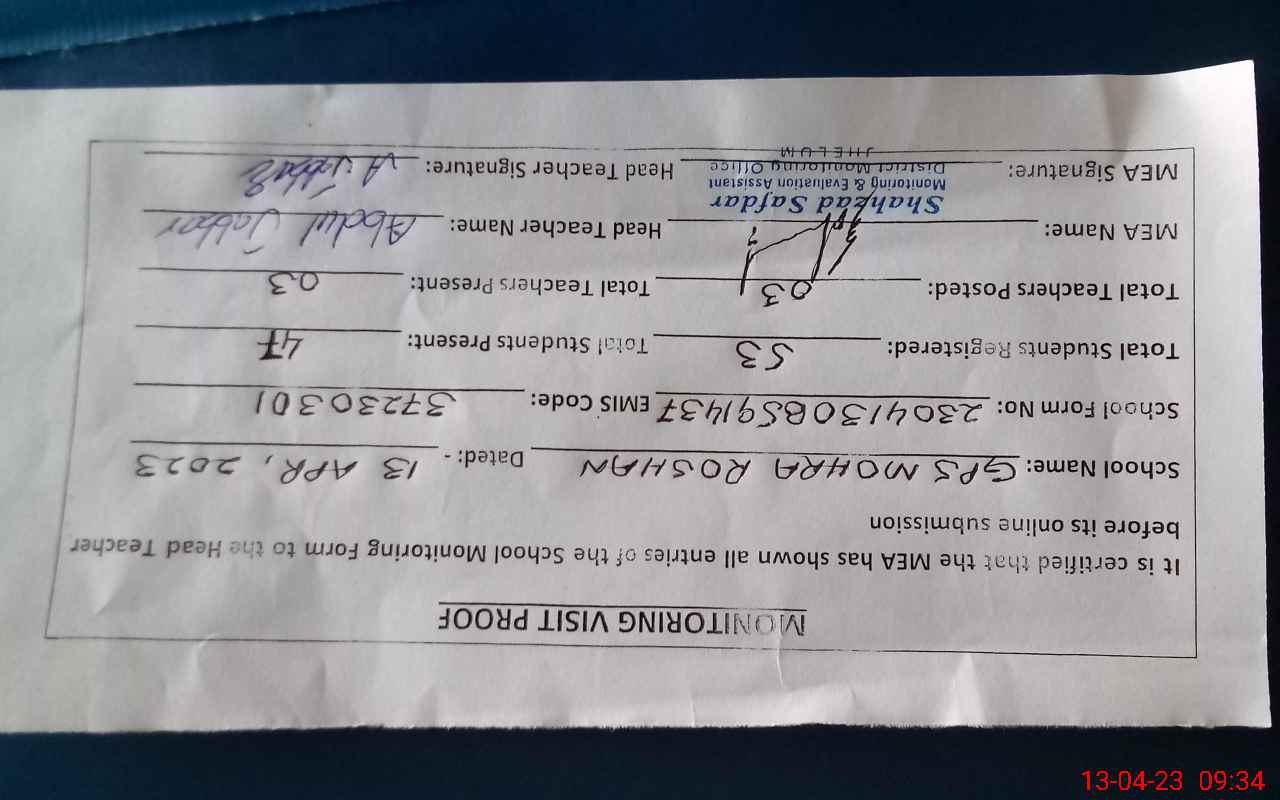 MONITORING VISIT PROOF
It is certified that the MEA has shown all entries of the School Monitoring Form to the Head Teacher
before its online submission
School Name: GPS MOHRA ROSHAN Dated: - 13 APR, 2023
School Form No: 23041308591437 EMIS Code: 37230301
Total Students Registered: 53 Total Students Present: 47
Total Teachers Posted: 03 Total Teachers Present: 03
MEA Name: Head Teacher Name: Abdul Jabbar
Shahzad Safdar
Monitoring & Evaluation Assistant
District Monitoring Office
JHELUM
MEA Signature: Head Teacher Signature: A Jabbar
13-04-23 09:34